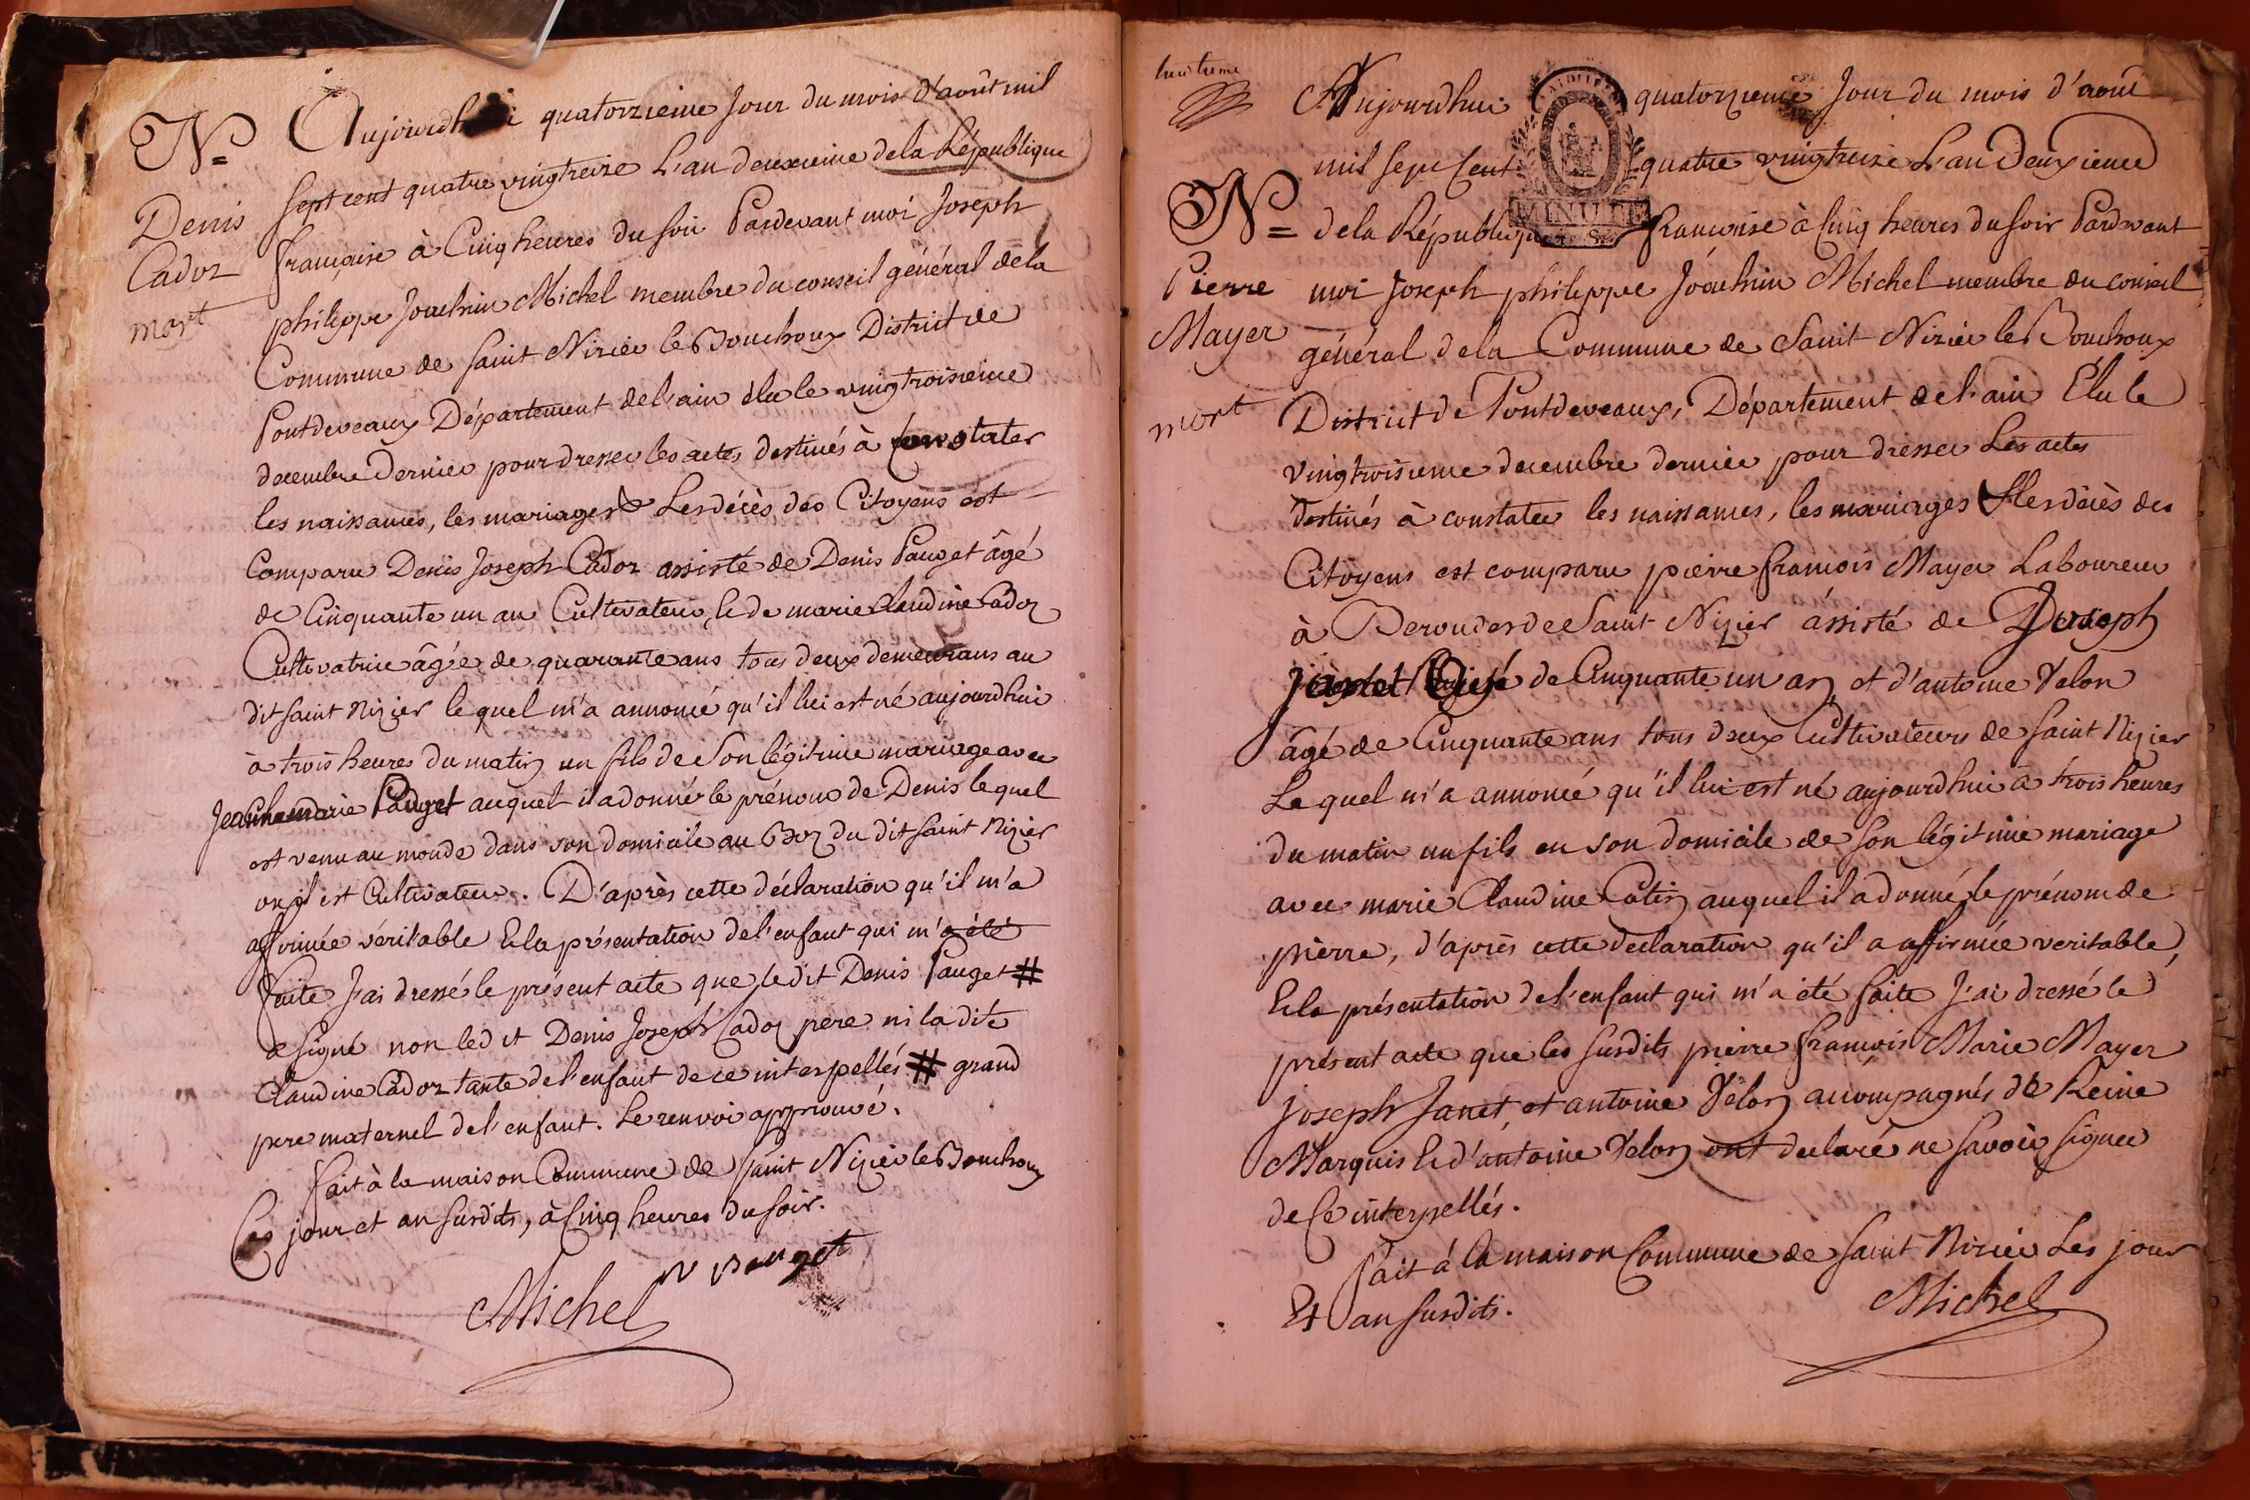 N=
Denis
Cadoz
mort
Aujourdhui quatorzieme Jour du mois d'août mil
Sept cent quatre vingtreize L'an deuxieme dela République
française à Cinq heures du soir Pardevant moi Joseph
philippe Joachim Michel membre du conseil général dela
Commune de Saint Nizier le Bouchoux District de
Pontdevaux Département del'ain élu le vingtroisieme
decembre Dernier pour dresser les actes destinés à constater
les naissances, les mariages & Les décès des Citoyens est
Comparu Denis Joseph Cadoz assisté de Denis Pauget âgé
de Cinquante un an Cultivateur, & de marie Claudine Cadoz
Cultivatrice âgée de quarante ans tous deux demeurans au
dit saint Nizier lequel m'a annoncé qu'il lui est né aujourdhui
à trois heures du matin un fils de Son légitime mariage avec
Jeanne marie Pauget auquel il a donné le prénom de Denis lequel
est venu au monde dans son domicile au Boz du dit saint Nizier
où il est Cultivateur. D'après cette déclaration qu'il m'a
affirmée véritable & la présentation del'enfant qui m'a été
faite J'ai dressé le présent acte que ledit Denis Pauget #
a signé non led it Denis Joseph Cadoz pere ni la dite
Claudine Cadoz tante del'enfant de ce interpellés # grand
pere maternel del'enfant. Le renvoi approuvé.
fait à la maison Commune de Saint Nizier le Bouchoux
Les jour et an susdits, à Cinq heures du soir.
Pauget
Michel
huitieme
N=
Pierre
Mayer
mort
Aujourdhui quatorzieme Jour du mois d'août
mil Sept Cent quatre vingtreize L'an Deuxieme
MINUTE
dela République francoise à Cinq heures du soir Pardevant
moi Joseph philippe Joachim Michel membre du conseil
général dela Commune de Saint Nizier le Bouchoux
District de Pontdeveaux, Département del'ain Élu le
vingtroisieme decembre dernier pour dresser Les actes
destinés à constater les naissances, les mariages & les décès des
Citoyens est comparu pierre francois Mayer Laboureur
à Beroudes de Saint Nizier assisté de Joseph
Janet âgé de Cinquante un an et d'antoine Velon
âgé de Cinquante ans tous deux Cultivateurs de Saint Nizier
Lequel m'a annoncé qu'il lui est né aujourdhui à trois heures
du matin un fils en son domicile de son légitime mariage
avec marie Claudine Catin auquel il a donné le prénom de
pierre, d'après cette declaration qu'il a affirmée veritable,
& la présentation del'enfant qui m'a été faite J'ai dressé le
présent acte que les susdits pierre francois Marie Mayer
joseph Janet, et antoine Velon accompagnés de Reine
Marquis & d'antoine Velon ont declaré ne savoir signer
de Ce interpellés.
fait à la maison Commune de Saint Nizier Les jour
Et an susdits.
Michel